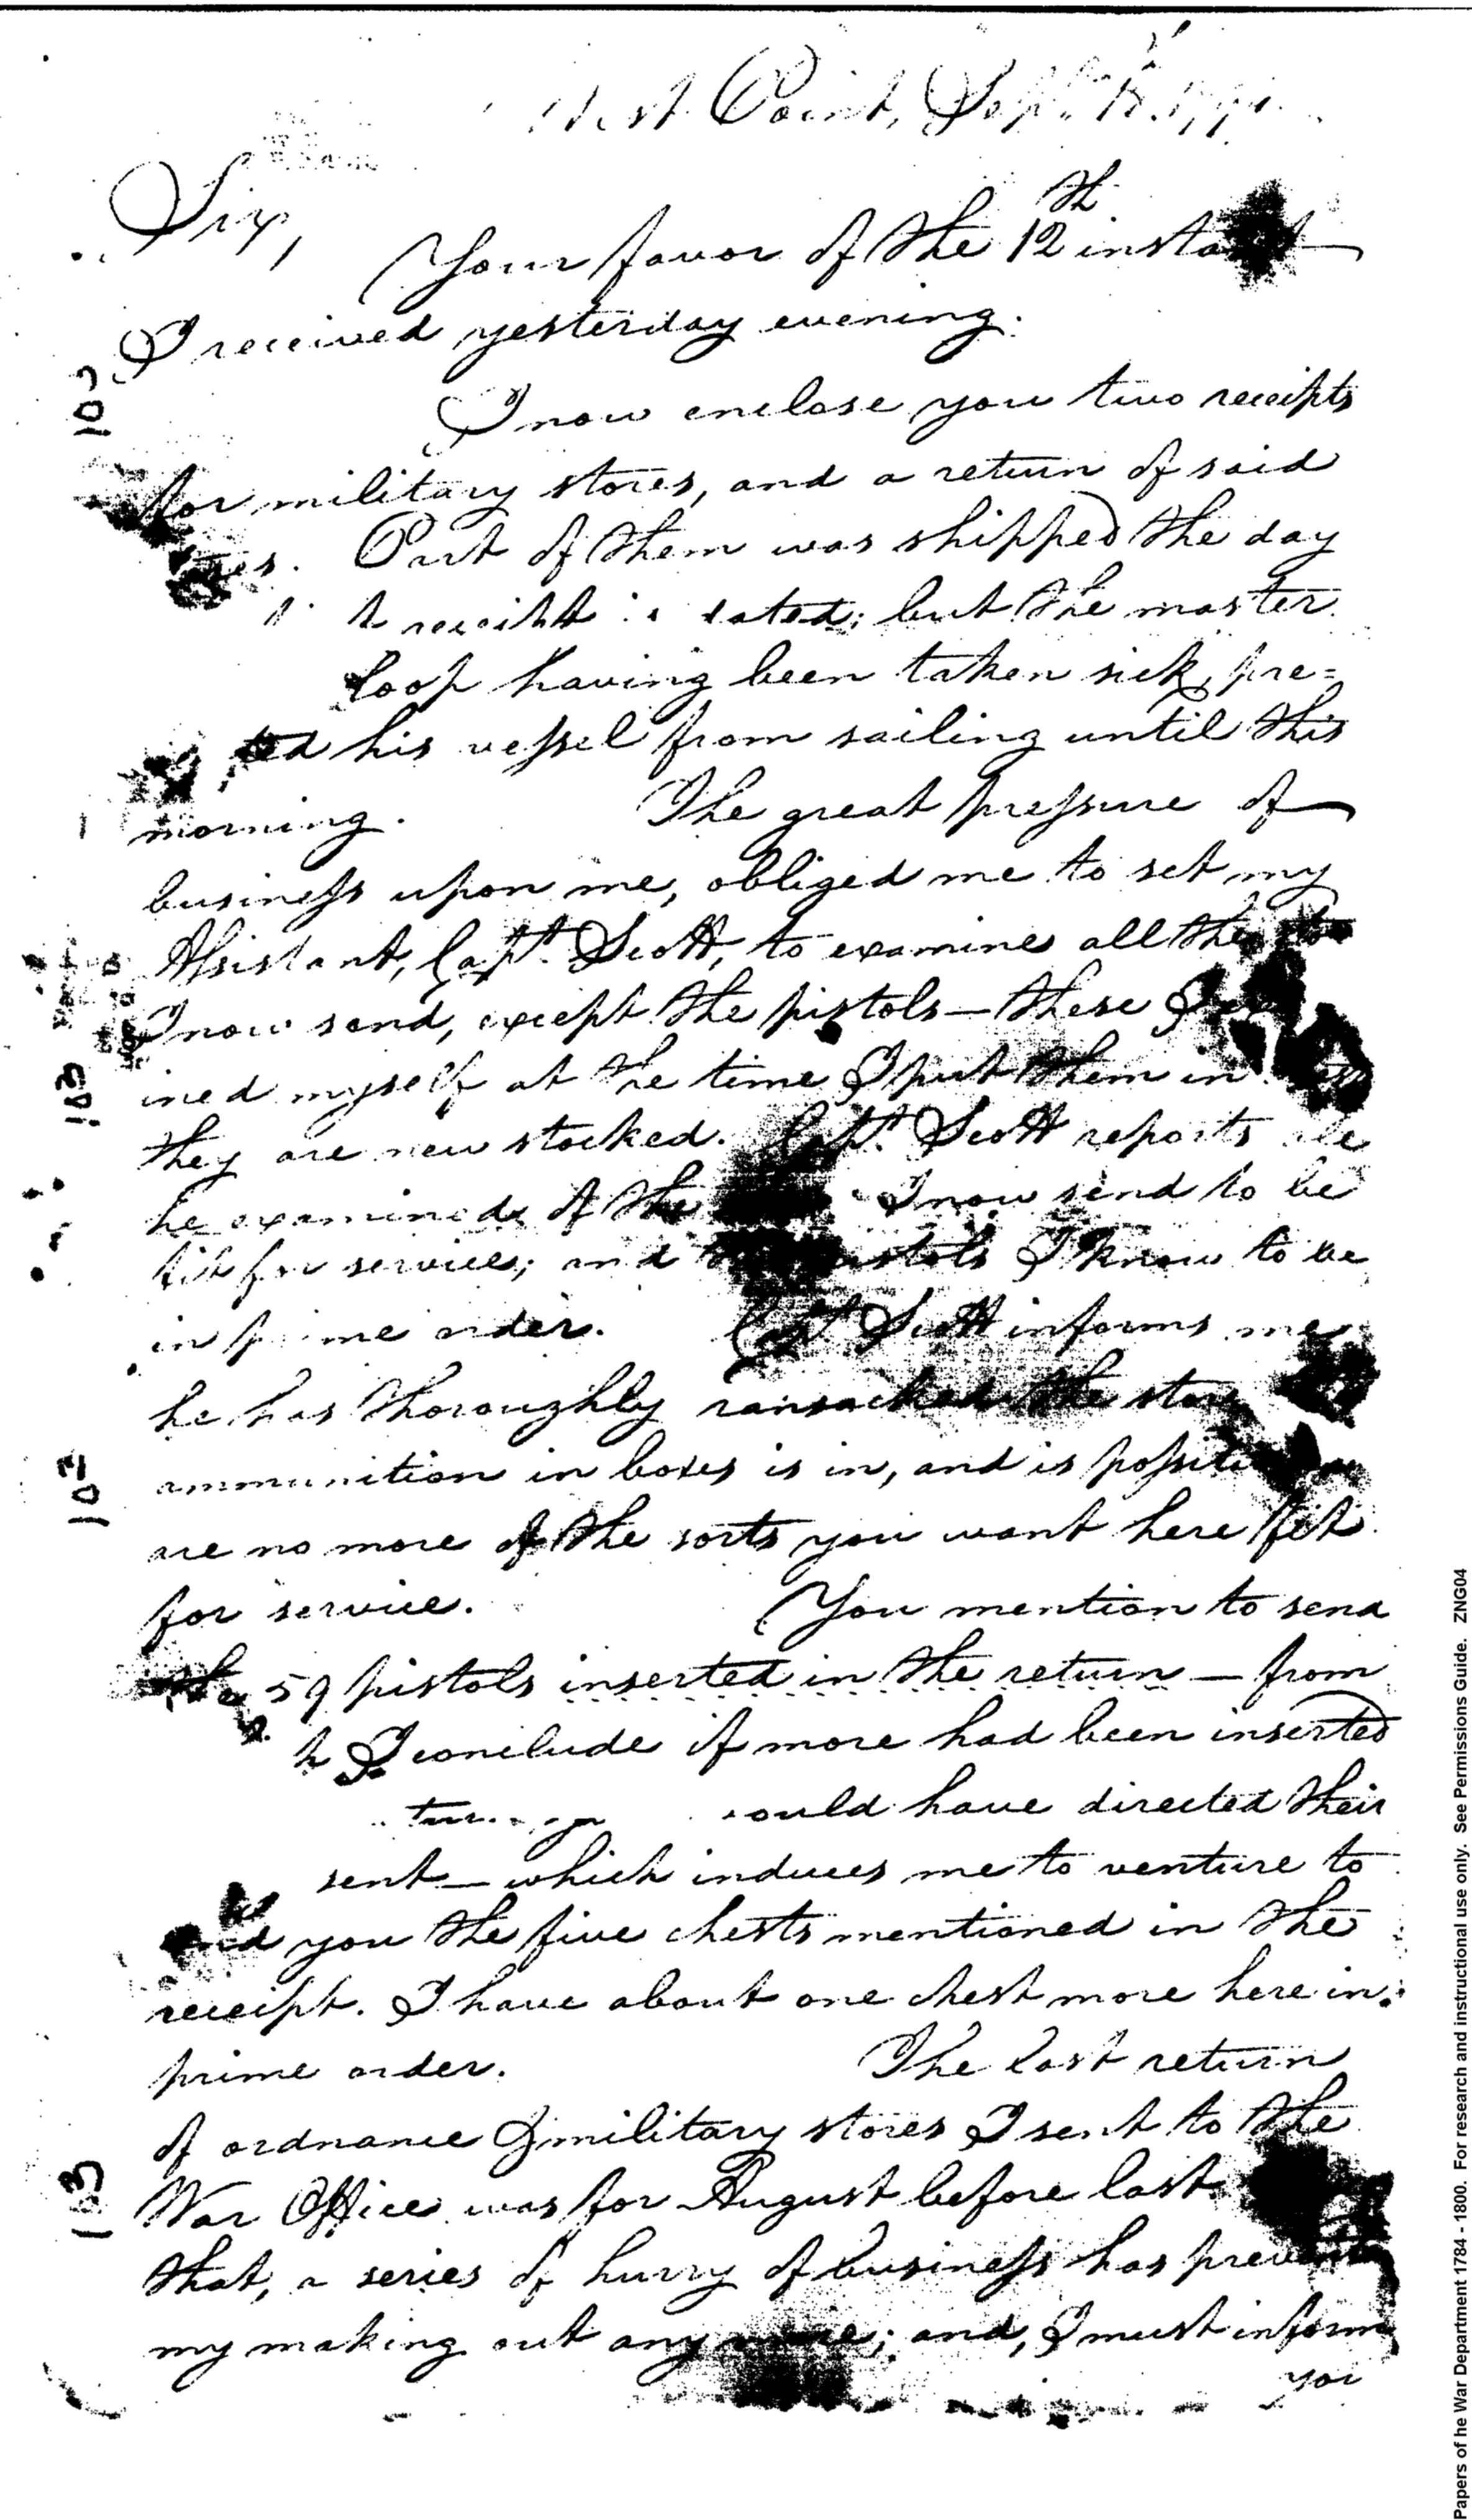 West Point, Sept.
Sir,
Your favor of the 12th instant
I received yesterday evening.
I now enclose you two receipts
for military stores, and a return of said
Part of them was shipped the day
receipt dated; but the master
loop having been taken sick, pre=
ted his vessel from sailing until this
morning. The great pressure of
business upon me, obliged me to set my
Assistant, Capt. Scott, to examine all the
I now send, except the pistols — these I
ined myself at the time I put them in
they are new stocked. Capt. Scott reports
he examined of the I now send to be
fit for service; and pistols I know to be
in prime order. Capt. Scott informs me
he has thoroughly ransacked the store
ammunition in boxes is in, and is
are no more of the sorts you want here fit
for service. You mention to send
the 59 pistols inserted in the return — from
h I conclude if more had been inserted
would have directed their
sent — which induces me to venture to
send you the five chests mentioned in the
receipt. I have about one chest more here in
prime order. The last return
of ordnance & military stores I sent to the
War Office was for August before last
that, a series of hurry of business has
my making out any more; and, I must inform
you
103
103
103
103
Papers of he War Department 1784 - 1800. For research and instructional use only. See Permissions Guide. ZNG04